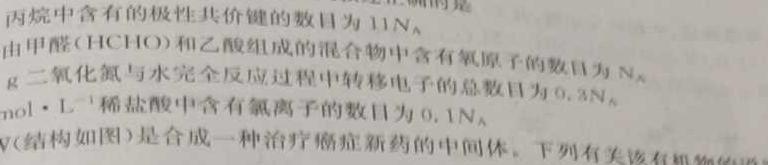 丙烷中含有的极性共价键的数目为 11N_A
由甲醛(HCHO)和乙酸组成的混合物中含有氧原子的数目为 N_A
g 二氧化氮与水完全反应过程中转移电子的总数目为 0.3N_A
mol·L⁻¹稀盐酸中含有氯离子的数目为 0.1N_A
(结构如图)是合成一种治疗癌症新药的中间体。下列有关该有机物的